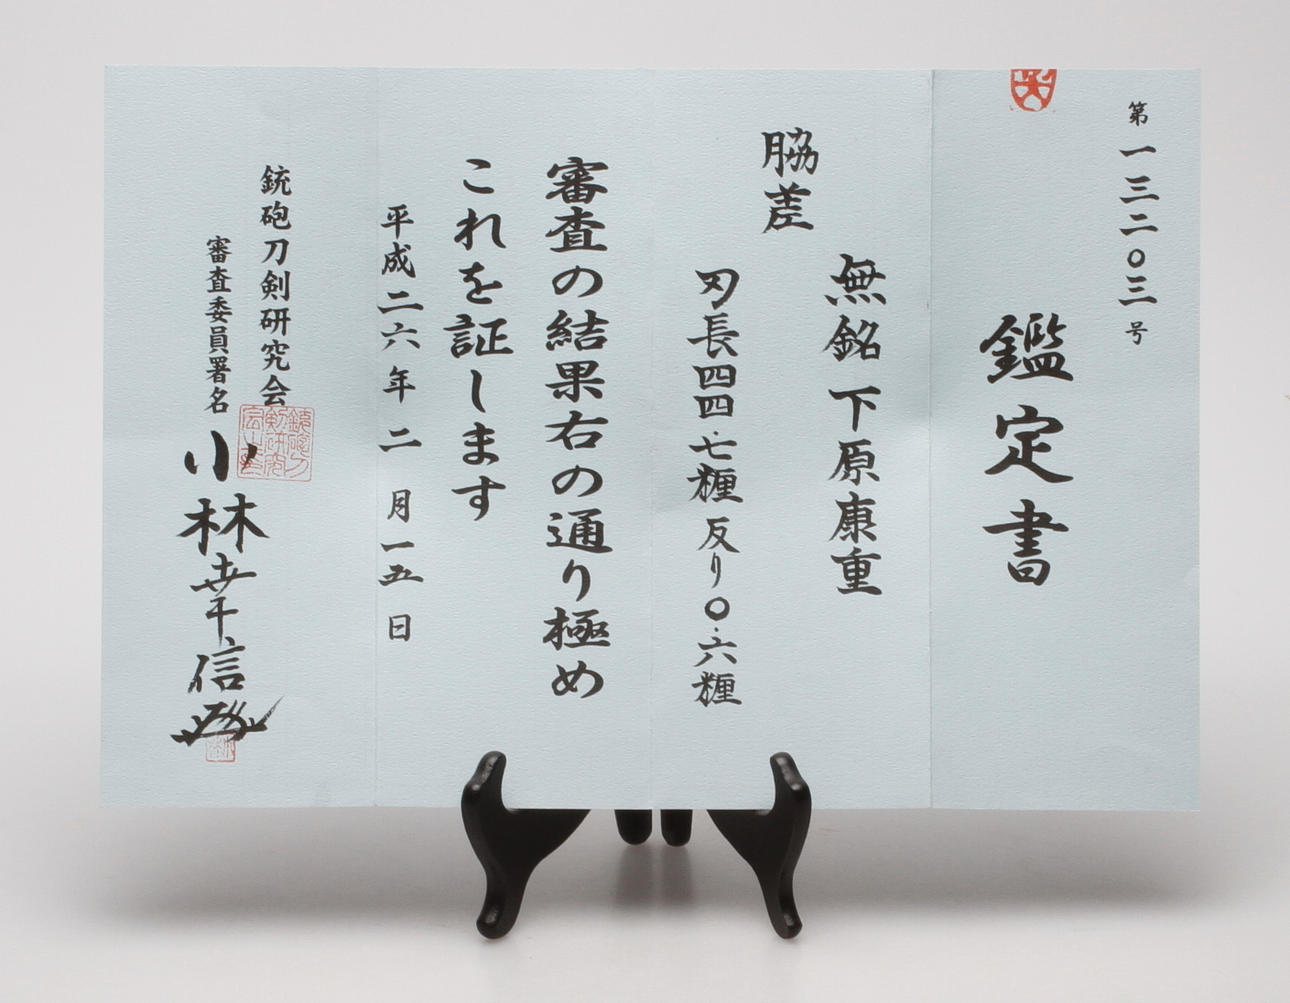 第一三二〇三号
鑑定書
無銘 下原康重
脇差
刃長四四・七糎 反り〇・六糎
審査の結果右の通り極め
これを証します
平成二六年二月一五日
銃砲刀剣研究会
審査委員署名
小林幸信